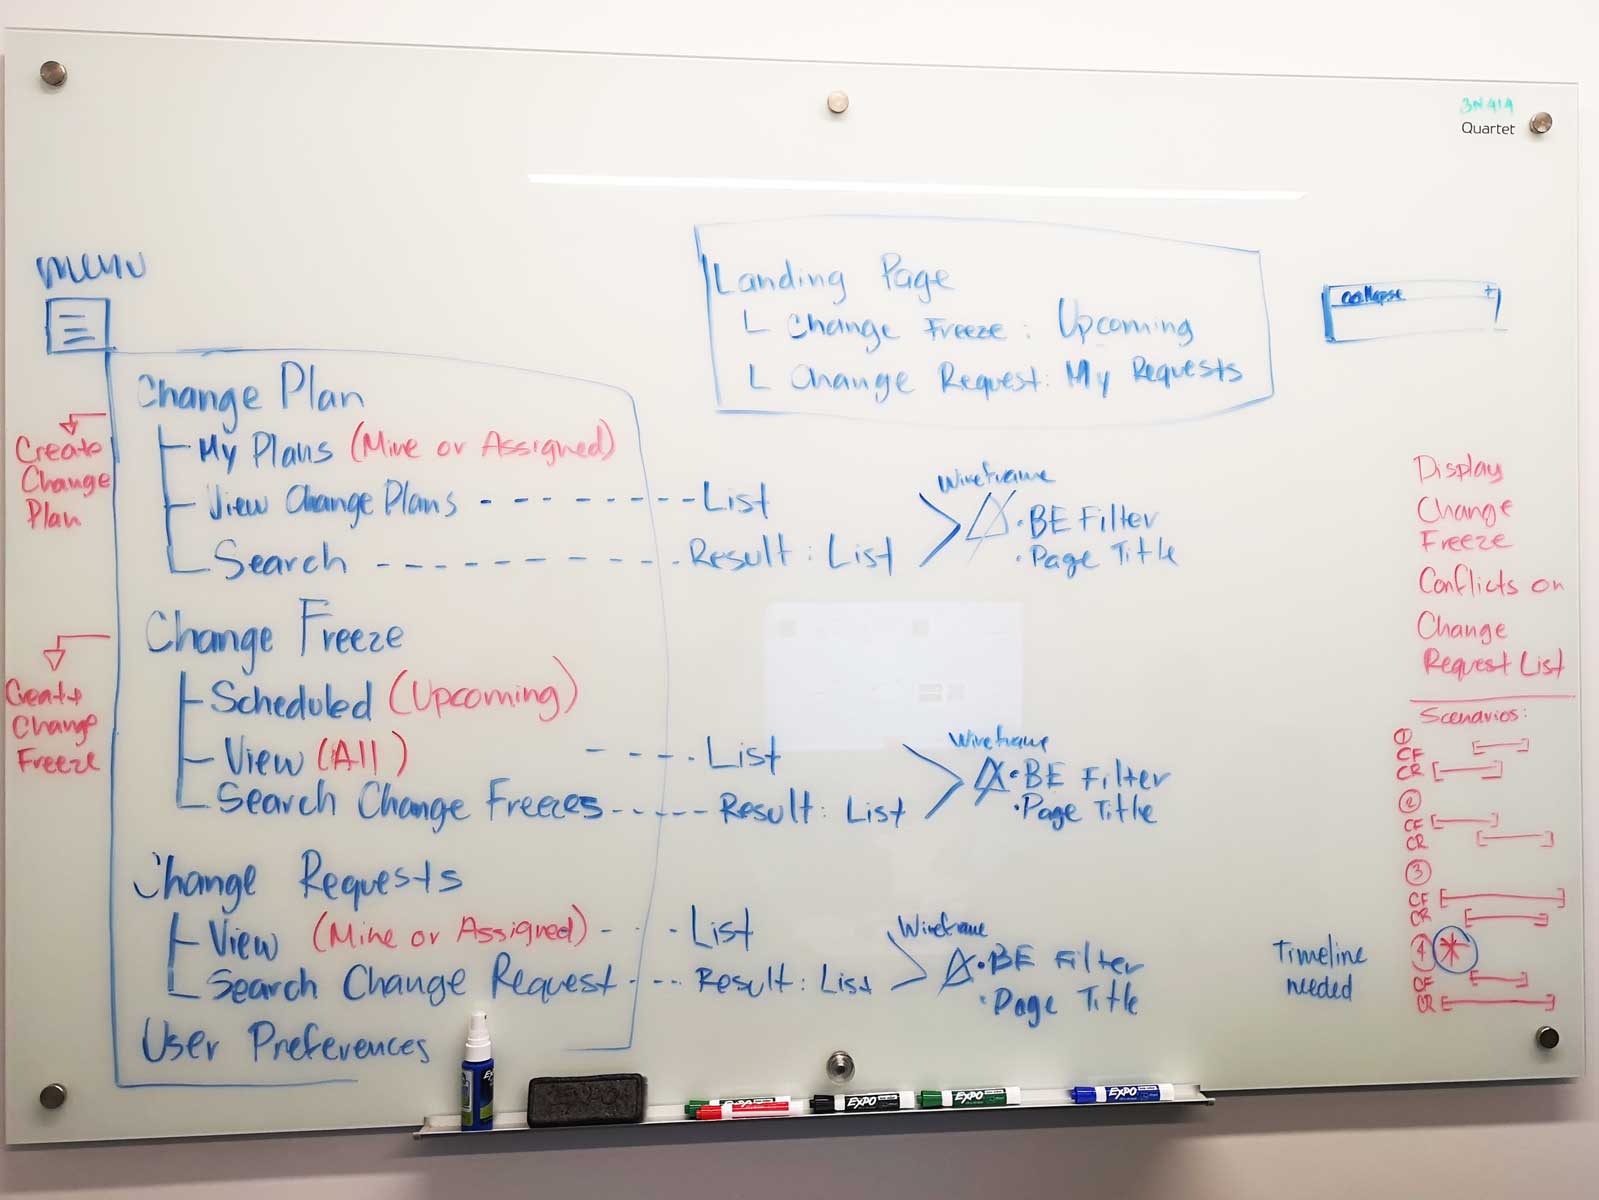 3N414
Quartet
menu
Landing Page
Change Freeze: Upcoming
Change Request: My Requests
collapse +
Change Plan
My Plans (Mine or Assigned)
View Change Plans - - - - - - - - List
Search - - - - - - - - - - Result: List
Wireframe
• BE Filter
• Page Title
Create
Change
Plan
Change Freeze
Scheduled (Upcoming)
View (All) - - - - List
Search Change Freezes - - - - - Result: List
Wireframe
• BE Filter
• Page Title
Create
Change
Freeze
Change Requests
View (Mine or Assigned) - - - List
Search Change Request - - - - Result: List
Wireframe
• BE Filter
• Page Title
User Preferences
Display
Change
Freeze
Conflicts on
Change
Request List
Scenarios:
1
CF
CR
2
CF
CR
3
CF
CR
4 *
CF
CR
Timeline
needed
EXPO
EXPO
EXPO
EXPO
EXPO